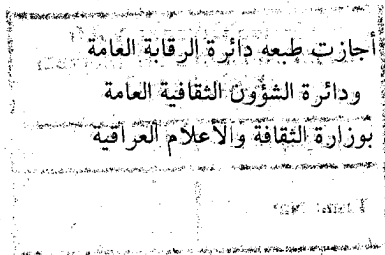 أجازت طبعه دائرة الرقابة العامة
ودائرة الشؤون الثقافية العامة
بوزارة الثقافة والأعلام العراقية